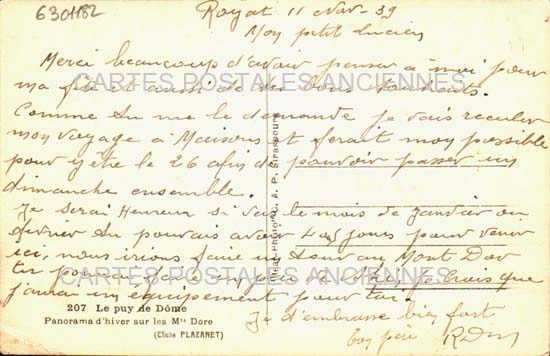 6301182
Royat 11 Nov. 39
Mon petit Lucien
Merci beaucoup d'avoir penser a moi pour
ma fête et aussi de tes bons souhaits.
CARTES POSTALES ANCIENNES
Comme tu me le demande je vais reculer
mon voyage à Maisons et ferait mon possible
pour y être le 26 afin de pouvoir passer un
dimanche ensemble.
Je serai Heureux si sur le mois de janvier ou
février tu pouvais avoir 4 ou 5 jours pour venir
ici, nous irions faire un tour au Mont Dor
tu pourrais faire un peu de Ski, je crois que
CARTES POSTALES ANCIENNES
j'aurai un équipement pour toi.
207 Le puy de Dôme
Panorama d'hiver sur les Mts Dore
(Cliché PLAZANET)
Je t'embrasse bien fort
ton père
C. A. P. Strasbourg